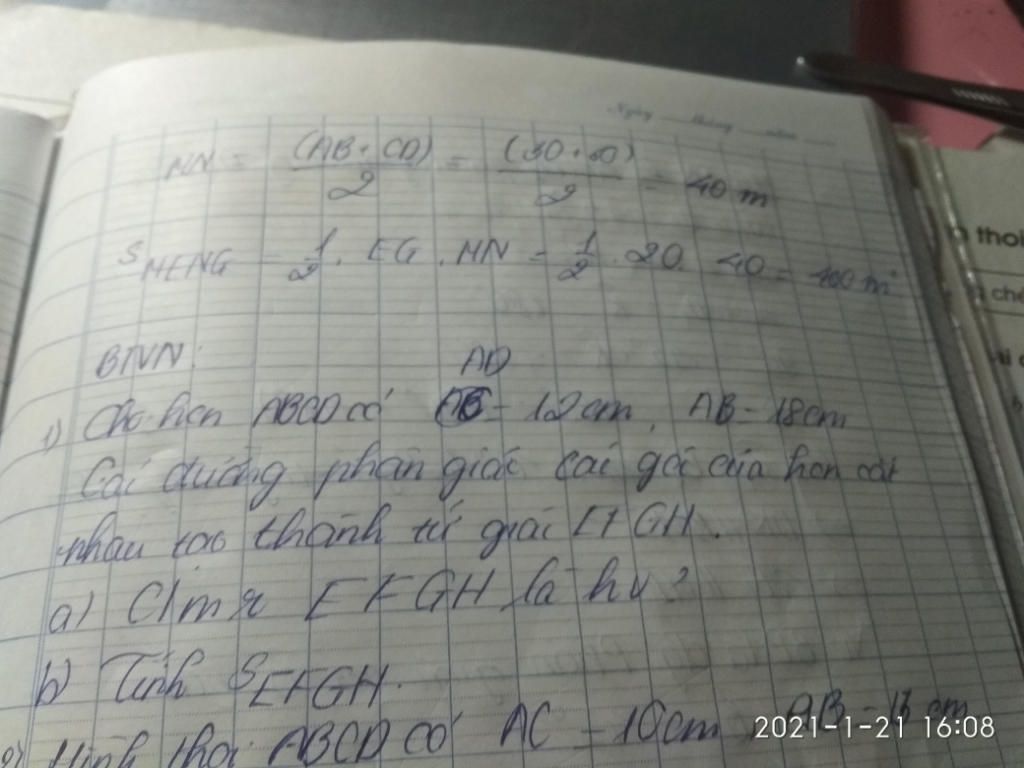 Ngày tháng năm
MN = (AB + CD)/2 = (30 + 50)/2 = 40 m
S MENG = 1/2 . EG . MN = 1/2 . 20 . 40 = 400 m²
BTVN:
AD
1) Cho hcn ABCD có = 12 cm, AB = 18 cm
Các đường phân giác các góc của hcn cắt
nhau tạo thành tứ giác EFGH.
a) C/m r EFGH là hv?
b) Tính S EFGH.
2) Hình thoi ABCD có AC = 10 cm, AB =
thoi
2021-1-21 16:08